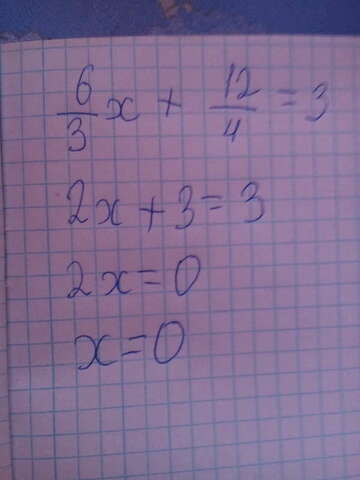 6/3 x + 12/4 = 3
2x + 3 = 3
2x = 0
x = 0